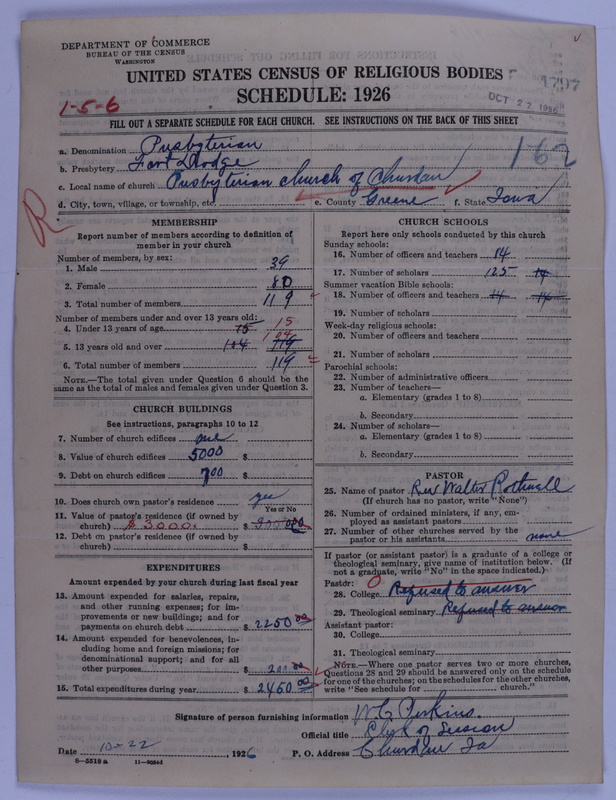 DEPARTMENT OF COMMERCE
BUREAU OF THE CENSUS
WASHINGTON
UNITED STATES CENSUS OF RELIGIOUS BODIES
SCHEDULE: 1926
1-5-6
OCT 27 1926
FILL OUT A SEPARATE SCHEDULE FOR EACH CHURCH. SEE INSTRUCTIONS ON THE BACK OF THIS SHEET
162
a. Denomination Presbyterian
b. Presbytery Fort Dodge
c. Local name of church Presbyterian church of Churdan
d. City, town, village, or township, etc. e. County Greene f. State Iowa
R
MEMBERSHIP
Report number of members according to definition of
member in your church
Number of members, by sex:
1. Male 39
2. Female 80
3. Total number of members 119
Number of members under and over 13 years old:
4. Under 13 years of age 15 15
5. 13 years old and over 104 104 119
6. Total number of members 119
NOTE.—The total given under Question 6 should be
the same as the total of males and females given under Question 3.
CHURCH BUILDINGS
See instructions, paragraphs 10 to 12
7. Number of church edifices one
8. Value of church edifices 5000 $
9. Debt on church edifices 700 $
10. Does church own pastor's residence yes
Yes or No
11. Value of pastor's residence (if owned by
church) $3000. $ 3000.00
12. Debt on pastor's residence (if owned by
church) $
EXPENDITURES
Amount expended by your church during last fiscal year
13. Amount expended for salaries, repairs,
and other running expenses; for im-
provements or new buildings; and for
payments on church debt $ 2250 00
14. Amount expended for benevolences, in-
cluding home and foreign missions; for
denominational support; and for all
other purposes $ 200 00
15. Total expenditures during year $ 2450 00
CHURCH SCHOOLS
Report here only schools conducted by this church
Sunday schools:
16. Number of officers and teachers 14
17. Number of scholars 125 14
Summer vacation Bible schools:
18. Number of officers and teachers 14 14
19. Number of scholars
Week-day religious schools:
20. Number of officers and teachers
21. Number of scholars
Parochial schools:
22. Number of administrative officers
23. Number of teachers—
a. Elementary (grades 1 to 8)
b. Secondary
24. Number of scholars—
a. Elementary (grades 1 to 8)
b. Secondary
PASTOR
25. Name of pastor Rev Walter Rothwell
(If church has no pastor, write "None")
26. Number of ordained ministers, if any, em-
ployed as assistant pastors
27. Number of other churches served by the
pastor or his assistants none
If pastor (or assistant pastor) is a graduate of a college or
theological seminary, give name of institution below. (If
not a graduate, write "No" in the space indicated.)
Pastor: 0
28. College Refused to answer
29. Theological seminary Refused to answer
Assistant pastor:
30. College
31. Theological seminary
NOTE.—Where one pastor serves two or more churches,
Questions 28 and 29 should be answered only on the schedule
for one of the churches; on the schedules for the other churches,
write "See schedule for church."
Signature of person furnishing information W. G. Perkins.
Official title Clerk of Session
Date 10-22 1926 P. O. Address Churdan Ia
8-5518 a